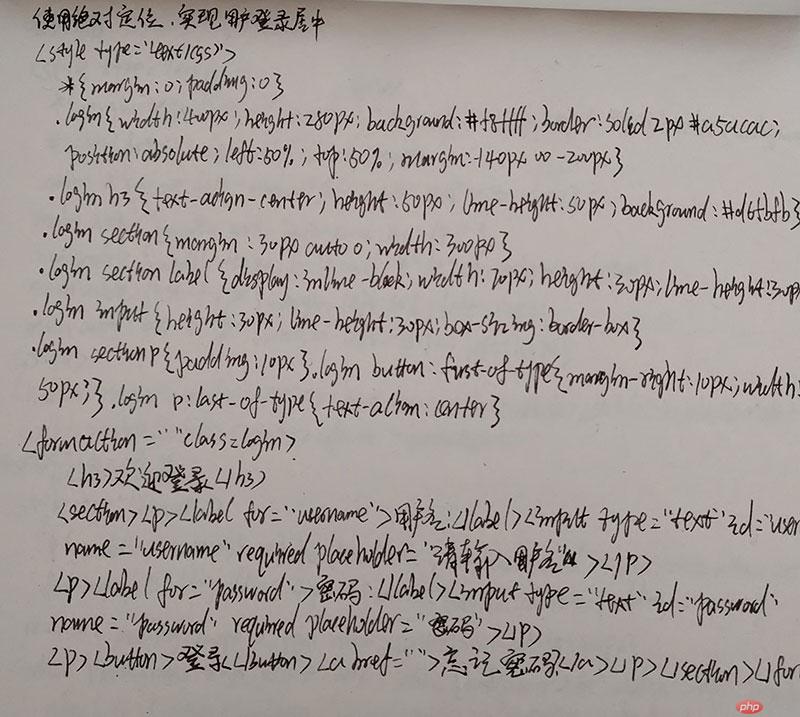 使用绝对定位,实现用户登录居中
<style type="text/css">
*{margin:0;padding:0}
.login{width:400px;height:280px;background:#f8ffff;border:solid 2px #a5acac;
position:absolute;left:50%;top:50%;margin:-140px 00 -200px}
.login h3{text-align-center;height:50px;line-height:50px;background:#d6fbfb}
.login section{margin:30px auto 0;width:300px}
.login section label{display:inline-block;width:70px;height:30px;line-height:30px
.login input{height:30px;line-height:30px;box-sizing:border-box}
.login section p{padding:10px}.login button:first-of-type{margin-right:10px;width:
50px;}.login p:last-of-type{text-align:center}
<form action=""class=login>
<h3>欢迎登录</h3>
<section><p><label for="username">用户名:</label><input type="text"id="user
name="username" required placeholder="请输入用户名"></p>
<p><label for="password">密码:</label><input type="text" id="password"
name="password" required placeholder="密码"></p>
<p><button>登录</button><a href="">忘记密码</a></p></section></for
php